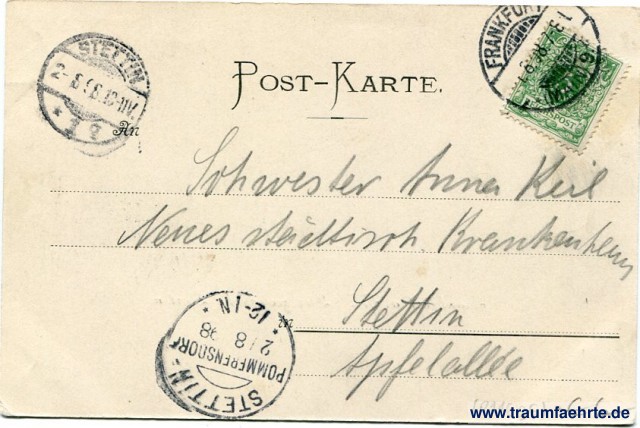 STETTIN
FRANKFURT
POST-KARTE.
An
Schwester Anna Keil
Neues städtisch. Krankenhaus
Stettin
Apfelallée
STETTIN-
POMMERENSDORF
2/8 98
12-1N.
www.traumfaehrte.de